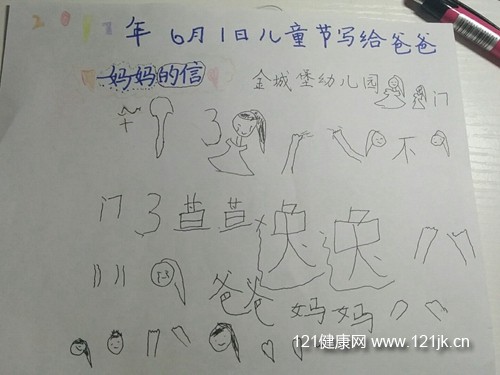 201 年 6月1日儿童节写给爸爸
妈妈的信 金城堡幼儿园 门
3 不
门 3 苗苗 兔兔
爸爸 妈妈
121健康网 www.121jk.cn